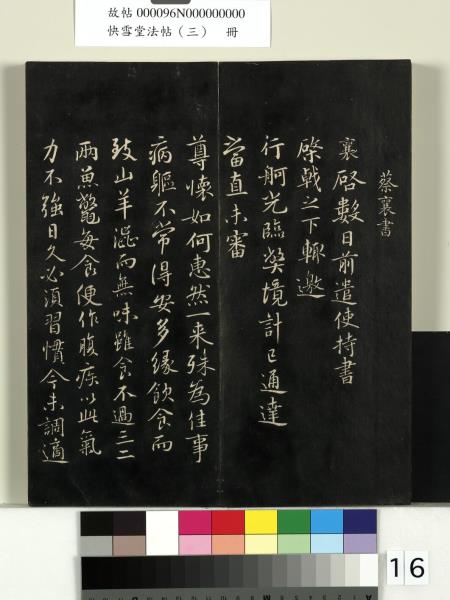 故帖 000096N000000000
快雪堂法帖（三） 冊
蔡襄書
襄啓數日前遣使持書
棨戟之下輒邀
行舸光臨弊境計已通達
當直未審
尊懷如何惠然一来殊為佳事
病軀不常得安多緣飲食而
致山羊澁而無味雖食不過三二
兩魚鱉每食便作腹疾以此氣
力不強日久必須習慣今未調適
16